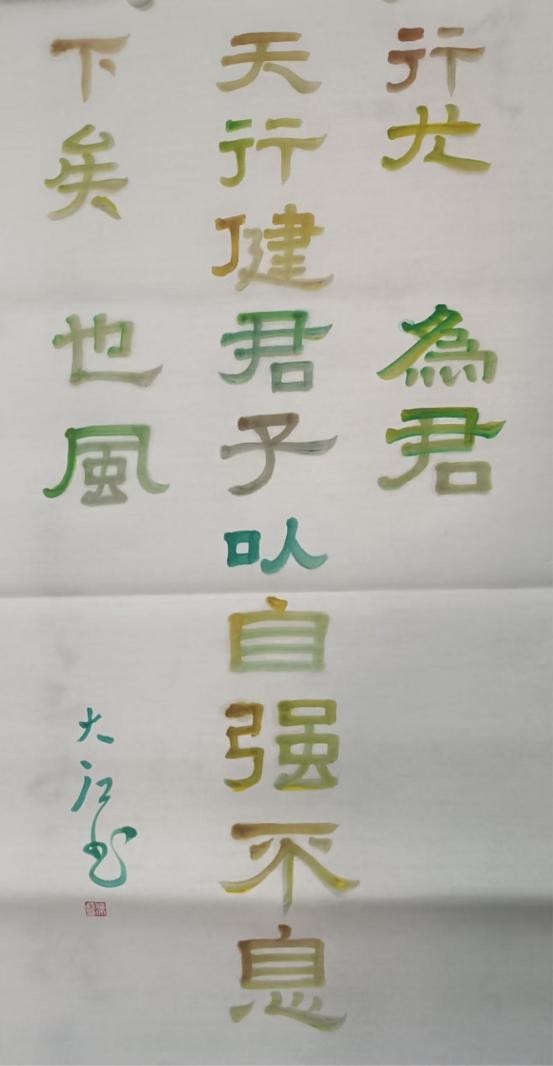 行尤 為君
天行健君子以自强不息
下矣 也風
大江书